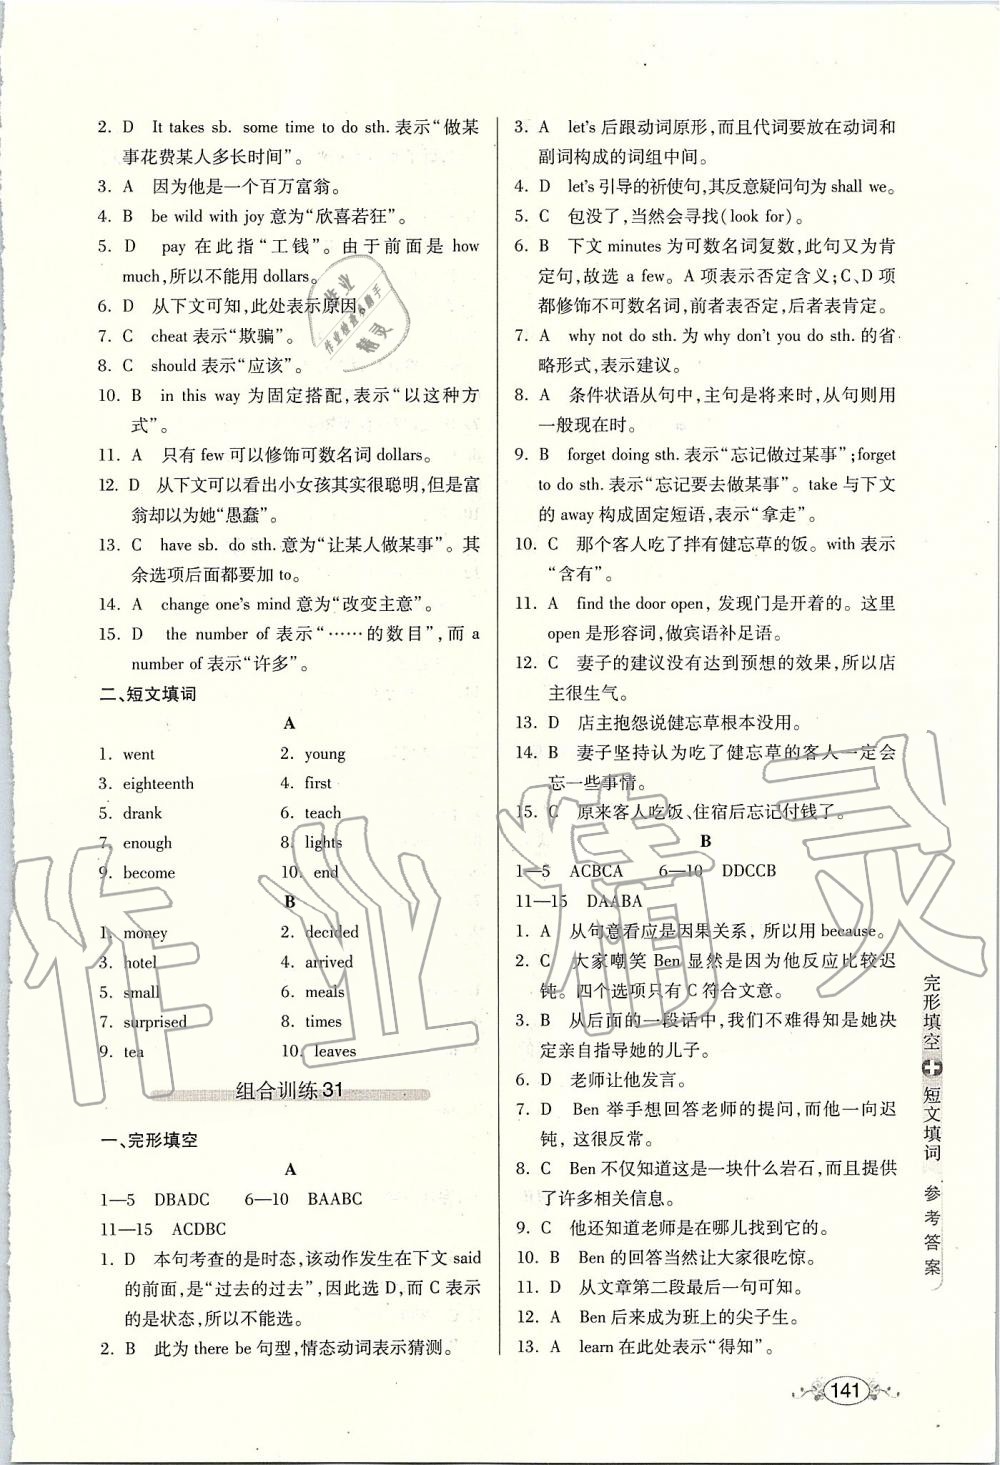 2. D It takes sb. some time to do sth. 表示“做某
事花费某人多长时间”。
3. A 因为他是一个百万富翁。
4. B be wild with joy 意为“欣喜若狂”。
5. D pay 在此指“工钱”。由于前面是 how
much,所以不能用 dollars。
6. D 从下文可知,此处表示原因。
7. C cheat 表示“欺骗”。
8. C should 表示“应该”。
10. B in this way 为固定搭配,表示“以这种方
式”。
11. A 只有 few 可以修饰可数名词 dollars。
12. D 从下文可以看出小女孩其实很聪明,但是富
翁却以为她“愚蠢”。
13. C have sb. do sth. 意为“让某人做某事”。其
余选项后面都要加 to。
14. A change one's mind 意为“改变主意”。
15. D the number of 表示“……的数目”,而 a
number of 表示“许多”。
二、短文填词
A
1. went 2. young
3. eighteenth 4. first
5. drank 6. teach
7. enough 8. lights
9. become 10. end
B
1. money 2. decided
3. hotel 4. arrived
5. small 6. meals
7. surprised 8. times
9. tea 10. leaves
组合训练 31
一、完形填空
A
1—5 DBADC 6—10 BAABC
11—15 ACDBC
1. D 本句考查的是时态,该动作发生在下文 said
的前面,是“过去的过去”,因此选 D,而 C 表示
的是状态,所以不能选。
2. B 此为 there be 句型,情态动词表示猜测。
3. A let's 后跟动词原形,而且代词要放在动词和
副词构成的词组中间。
4. D let's 引导的祈使句,其反意疑问句为 shall we。
5. C 包没了,当然会寻找(look for)。
6. B 下文 minutes 为可数名词复数,此句又为肯
定句,故选 a few。A 项表示否定含义;C、D 项
都修饰不可数名词,前者表否定,后者表肯定。
7. A why not do sth. 为 why don't you do sth. 的省
略形式,表示建议。
8. A 条件状语从句中,主句是将来时,从句则用
一般现在时。
9. B forget doing sth. 表示“忘记做过某事”;forget
to do sth. 表示“忘记要去做某事”。take 与下文
的 away 构成固定短语,表示“拿走”。
10. C 那个客人吃了拌有健忘草的饭。with 表示
“含有”。
11. A find the door open, 发现门是开着的。这里
open 是形容词,做宾语补足语。
12. C 妻子的建议没有达到预想的效果,所以店
主很生气。
13. D 店主抱怨说健忘草根本没用。
14. B 妻子坚持认为吃了健忘草的客人一定会
忘一些事情。
15. C 原来客人吃饭、住宿后忘记付钱了。
B
1—5 ACBCA 6—10 DDCCB
11—15 DAABA
1. A 从句意看应是因果关系, 所以用 because。
2. C 大家嘲笑 Ben 显然是因为他反应比较迟
钝。四个选项只有 C 符合文意。
3. B 从后面的一段话中,我们不难得知是她决
定亲自指导她的儿子。
6. D 老师让他发言。
7. D Ben 举手想回答老师的提问,而他一向迟
钝, 这很反常。
8. C Ben 不仅知道这是一块什么岩石,而且提供
了许多相关信息。
9. C 他还知道老师是在哪儿找到它的。
10. B Ben 的回答当然让大家很吃惊。
11. D 从文章第二段最后一句可知。
12. A Ben 后来成为班上的尖子生。
13. A learn 在此处表示“得知”。
完形填空+短文填词 参考答案
141
作业精灵
作业
作业检查小助手
精灵